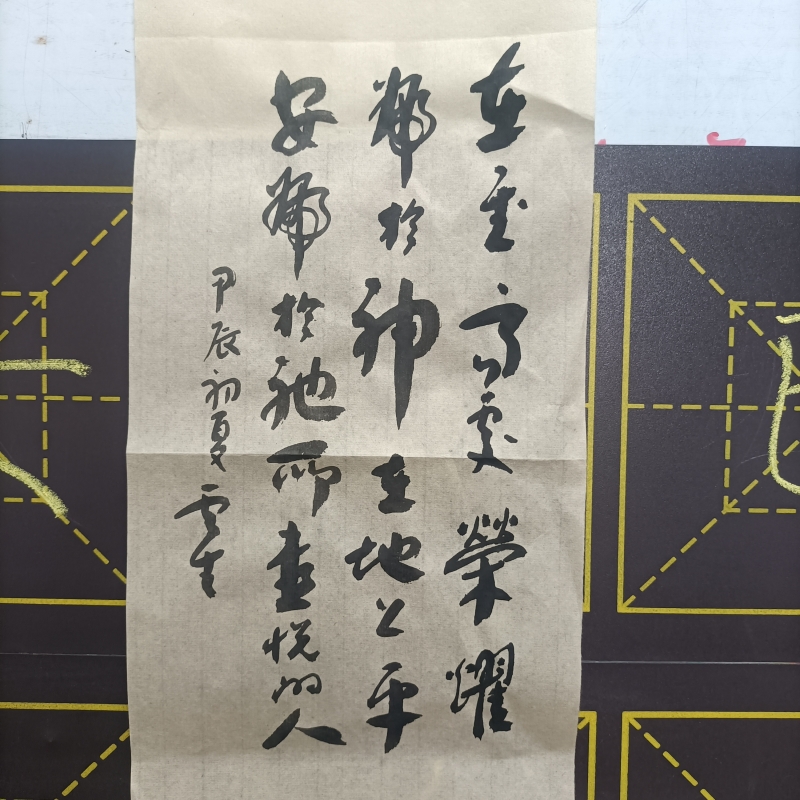 在至高處榮燿
歸於神在地上平
安歸於祂所喜悅的人
甲辰初夏雲生